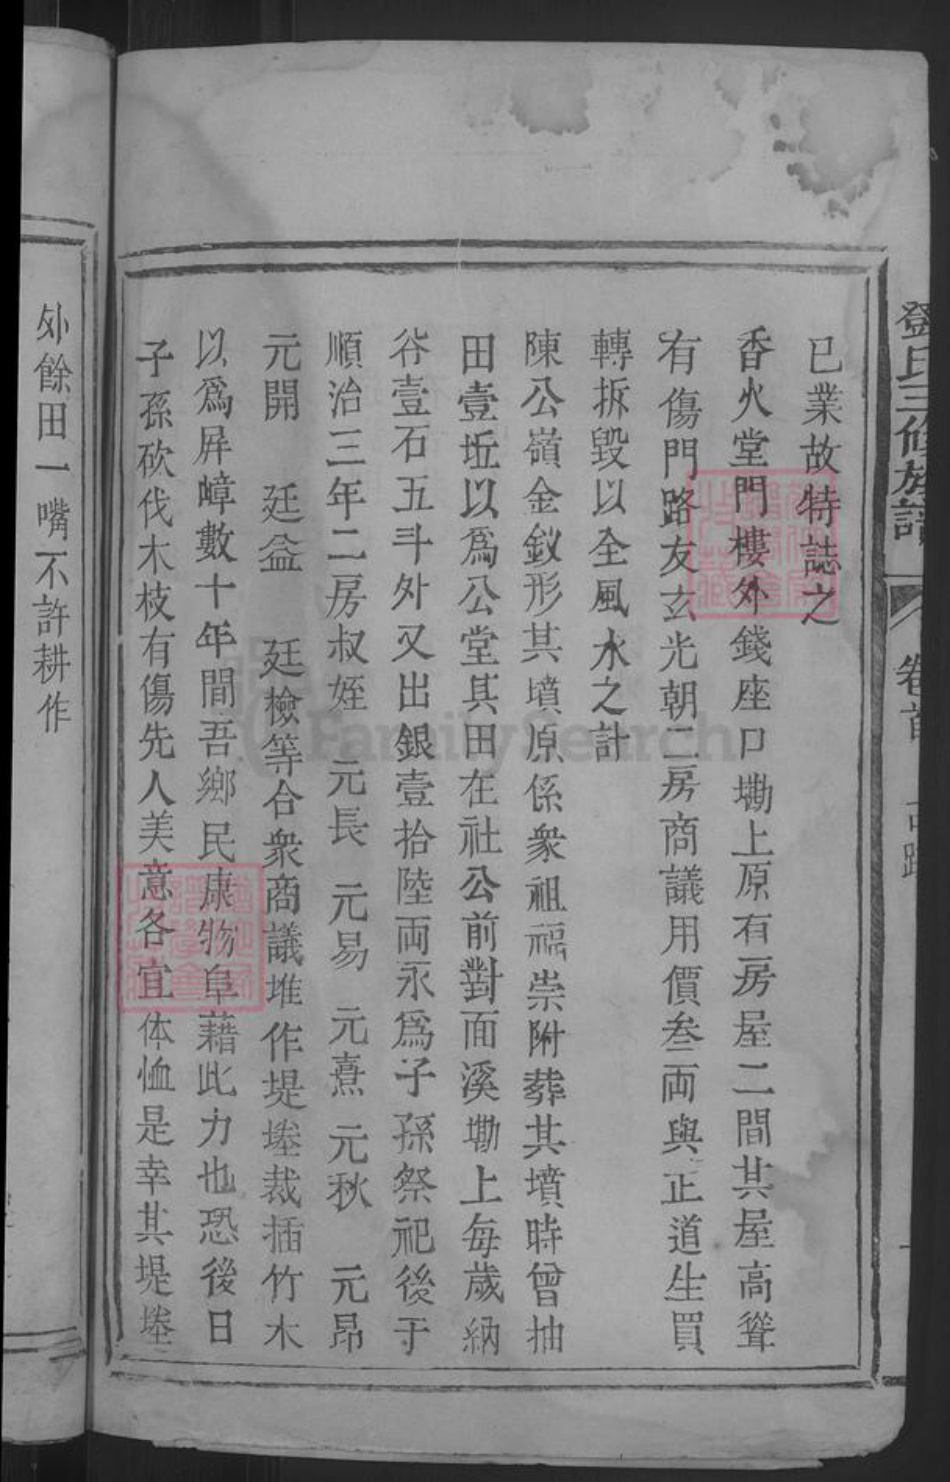 鄧氏三修族譜 卷首
已業故特誌之
香火堂門樓外錢座口墈上原有房屋二間其屋高聳
有傷門路友玄光朝二房商議用價叁両與正道生買
轉拆毀以全風水之計
陳公嶺金釵形其墳原係衆祖福崇附葬其墳時曾抽
田壹坵以爲公堂其田在社公前對面溪墈上每歲納
谷壹石五斗外又出銀壹拾陸両永爲子孫祭祀後于
順治三年二房叔姪 元長 元易 元熹 元秋 元昂
元開 廷益 廷檢等合衆商議堆作堤塂裁插竹木
以爲屛嶂數十年間吾鄉民康物阜藉此力也恐後日
子孫砍伐木枝有傷先人美意各宜体恤是幸其堤塂
外餘田一嘴不許耕作
FamilySearch